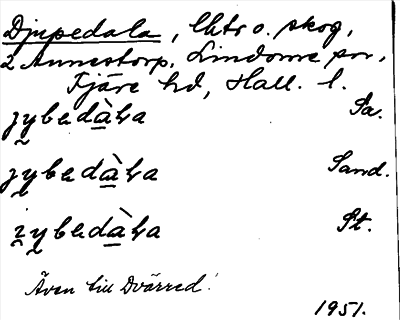 Djupedala, lht o. skog,
2 Annestorp, Lindome sn,
Fjäre hd, Hall. l.
jybedàla Sa.
jybedàla Sand.
iybedàla St.
Även till Dvärred!
1951.